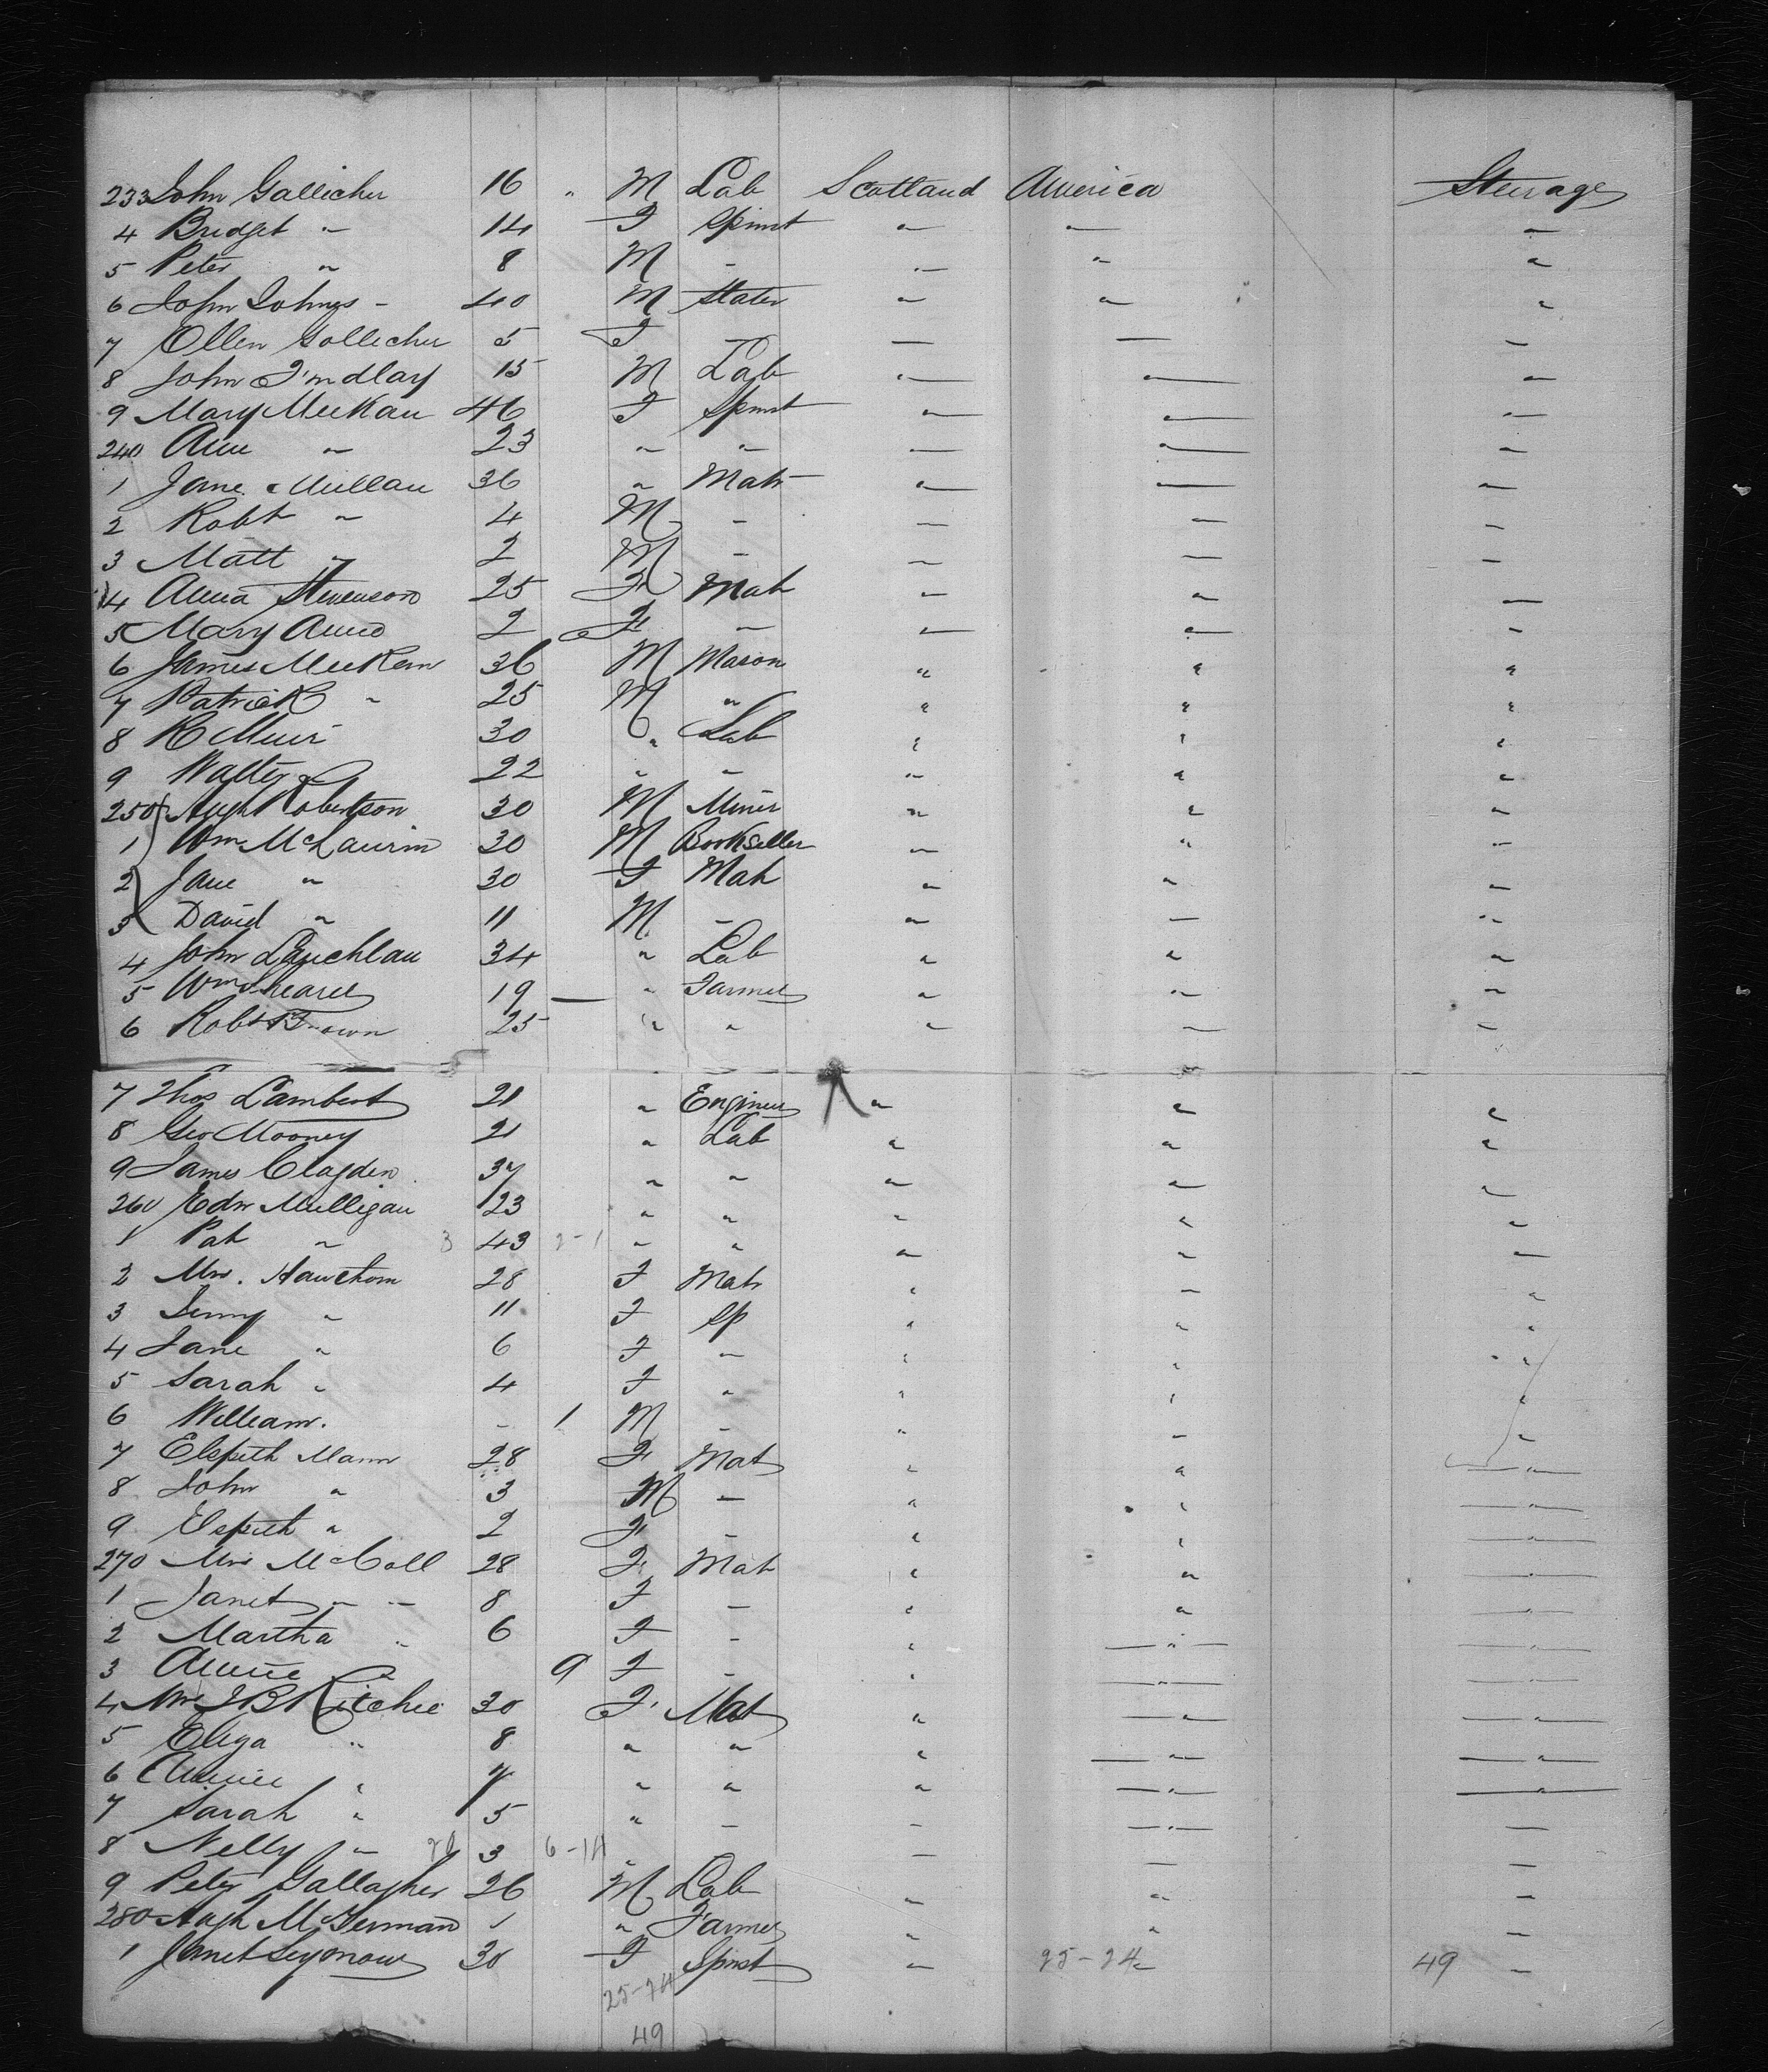 233 John Gallicher 16 " M Lab Scotland America Steerage
4 Bridget " 14 F Spinst " " "
5 Peter " 8 M - " " "
6 John Johngs - 40 M Slater " " "
7 Ellen Gollicher 5 F - - - -
8 John Findlay 15 M Lab " " "
9 Mary MeeKan 46 F Spinst " " "
240 Ann " 23 " " " " "
1 Jane Mullan 36 " Matr " " "
2 Robt " 4 M - " " "
3 Matt " 2 M - " " "
4 Anna Stevenson 25 F Mat " " "
5 Mary Ann 2 F - " " "
6 James MeeKan 36 M Mason " " "
7 Patrick " 25 M " " " "
8 R Muir 30 " Lab " " "
9 Walter " 22 " " " " "
250 Hugh Robertson 30 M Miner " " "
1 Wm McLaurin 30 M Bookseller " " "
2 Jane " 30 F Mat " " "
3 David " 11 M - " " "
4 John Lauchlan 34 " Lab " " "
5 Wm Shearer 19 - " Farmer " " "
6 Robt Brown 25 " " " " "
7 Thos Lambert 21 " Engineer " " "
8 Geo Mooney 21 " Lab " " "
9 James Clagden 37 " " " " "
260 Edw Mulligan 23 " " " " "
1 Pat " 3 43 2-1 " " " " "
2 Mrs. Hawthorn 28 F Matr " " "
3 Jenny " 11 F Sp " " "
4 Jane " 6 F - " " "
5 Sarah " 4 F " " " "
6 William. - 1 M - " " "
7 Elspeth Mann 28 F Mat " " "
8 John " 3 M - " " "
9 Elspeth " 2 F - " " "
270 Mrs McColl 28 F Mat " " "
1 Janet " - 8 F - " " "
2 Martha " 6 F - " " "
3 Annie " 9 F - " " "
4 Mrs J B Ritchie 30 F Mat " " "
5 Eliza " 8 " " " " "
6 Annie " 7 " " " " "
7 Sarah " 5 " - - " -
8 Nelly " 3 6-14 " - - -
9 Peter Gallagher 26 M Lab " " "
280 Hugh McKernan 1 " Farmer " " "
1 Janet Seymour 30 F Spinst " 25-24 " 49 "
25-24
49